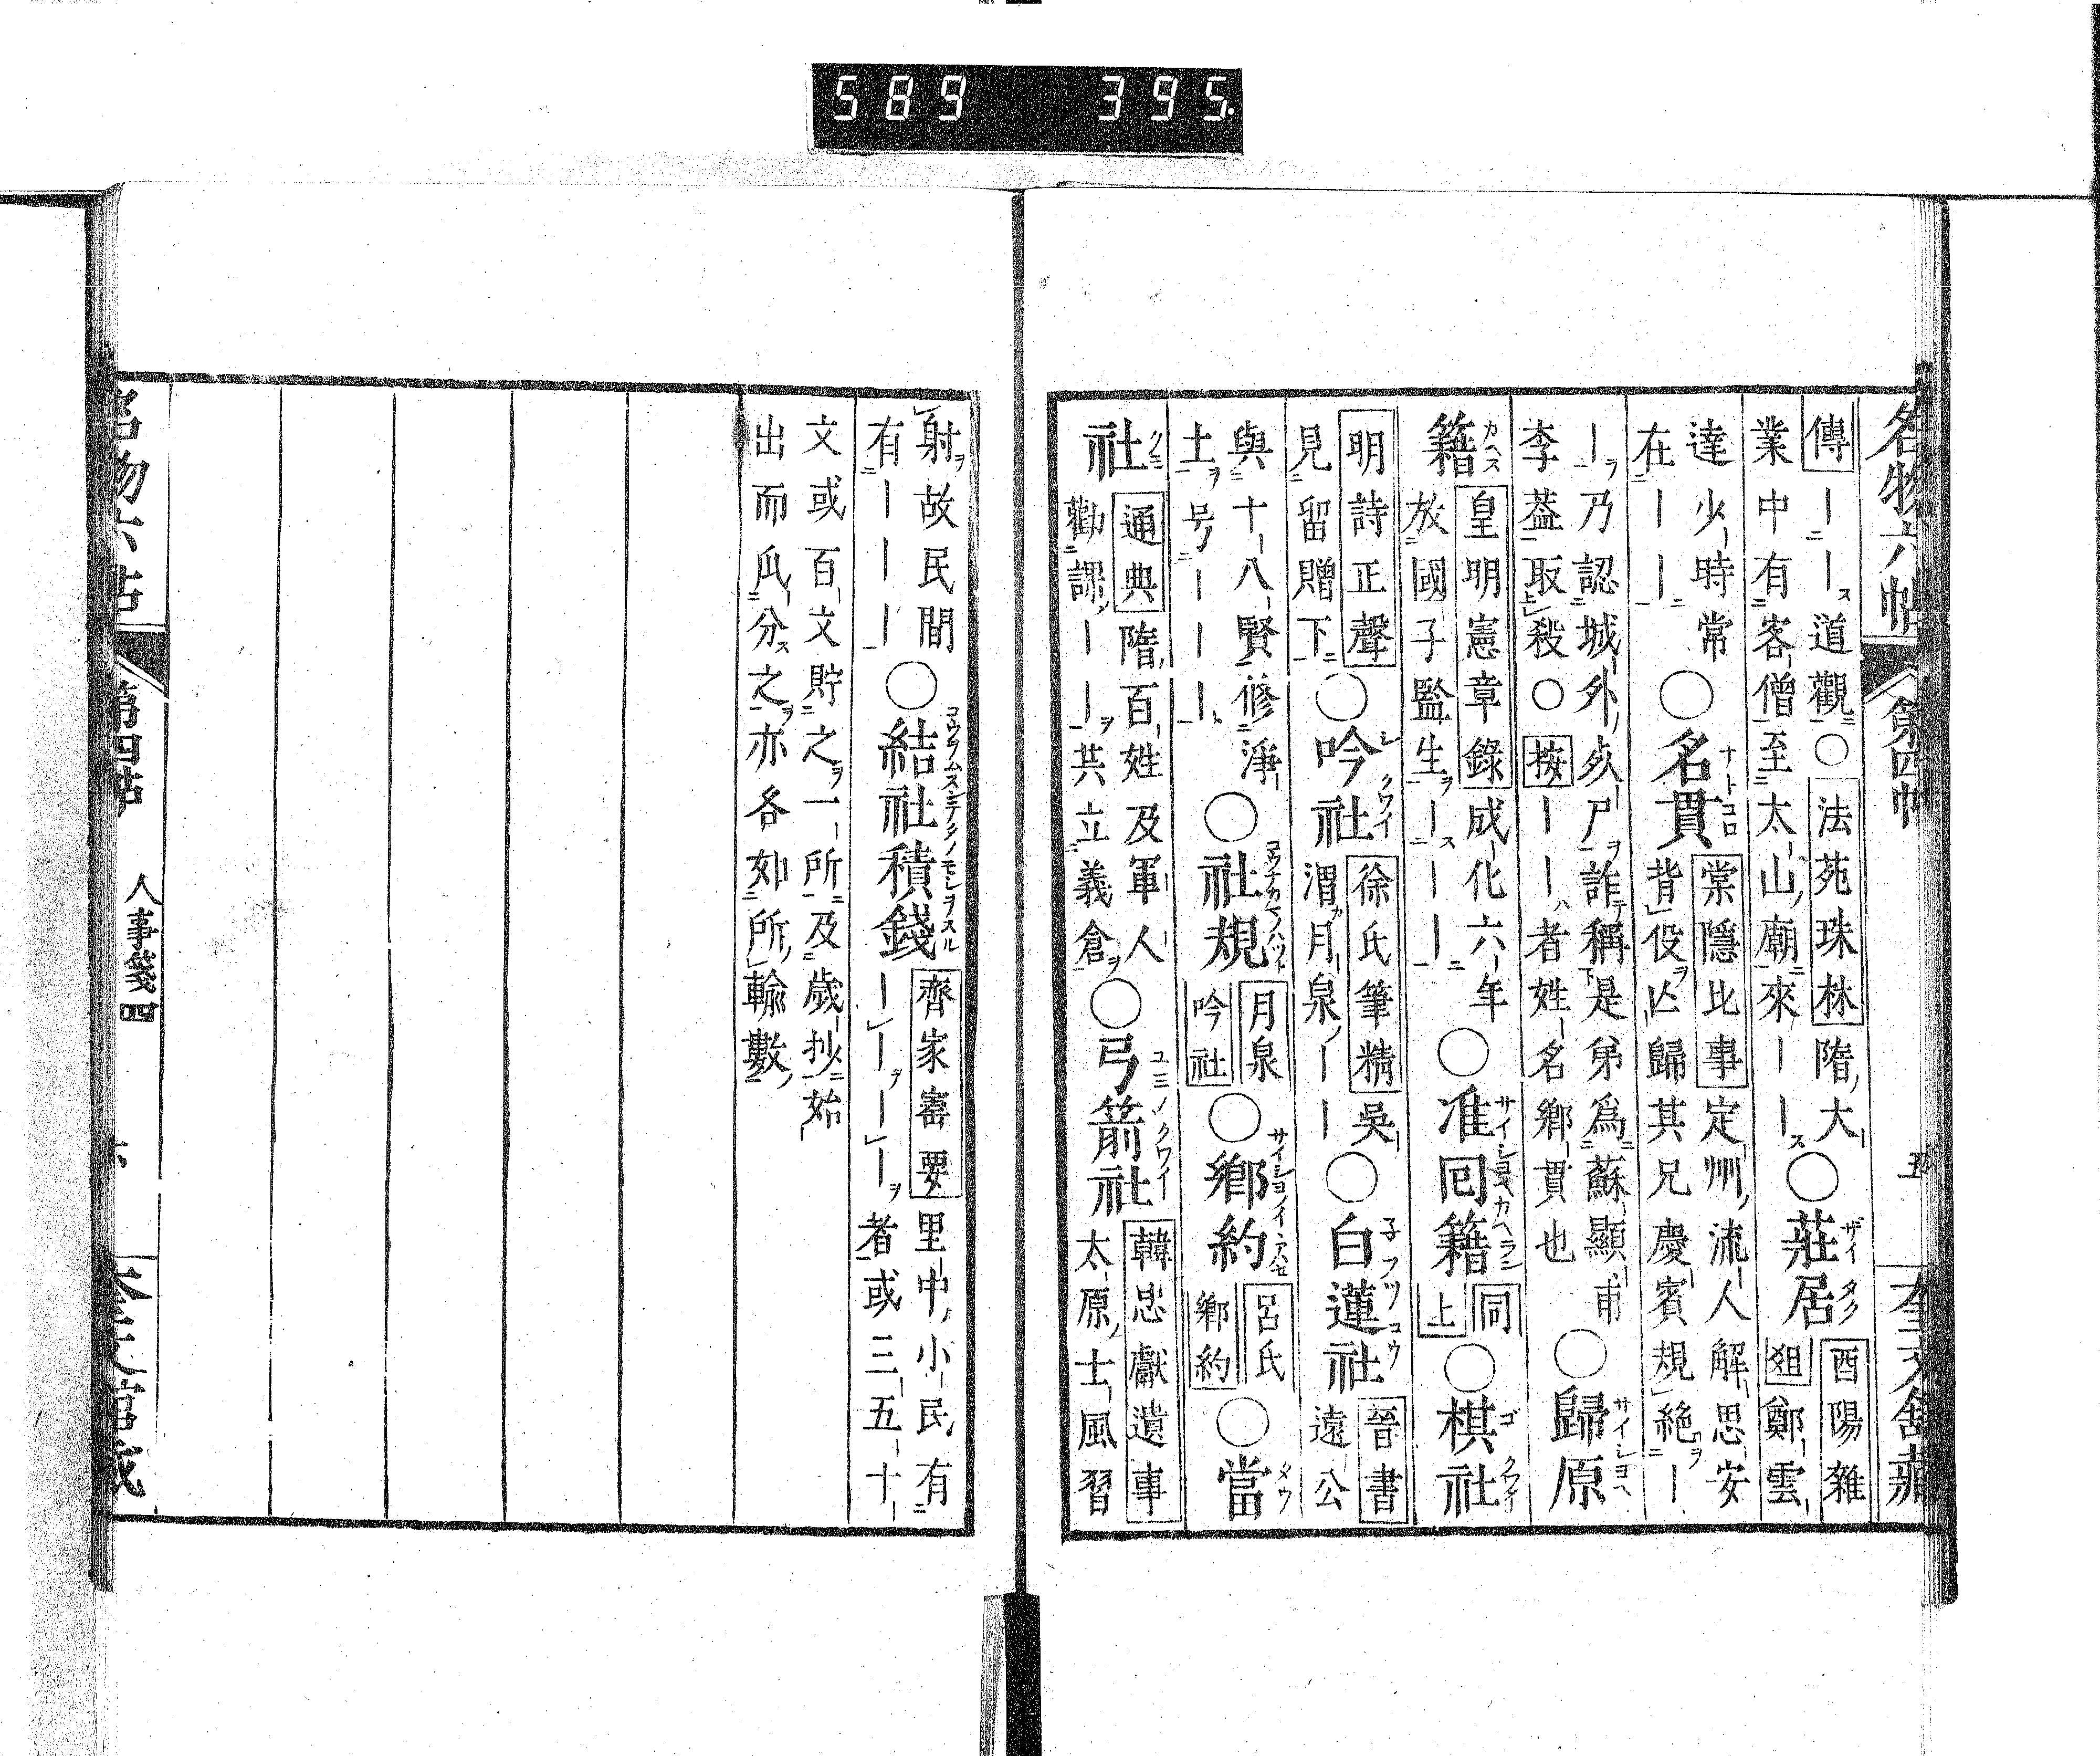 589 395.
名物六帖 第四帖 五 奎文舘藏
傳｜｜道觀○法苑珠林隋大
業中有客僧至太山廟來｜｜○莊居酉陽雜
俎鄭雲
達少時常
在｜｜｜○名貫棠隱比事定州流人解思安
背役亾歸其兄慶賓規絶｜
｜乃認城外死尸詐稱是弟爲蘇顯甫
李葢取殺○按｜｜｜者姓名鄉貫也○歸原
籍皇明憲章錄成化六年
放國子監生｜｜｜○准囘籍同上○棋社
明詩正聲
見留贈下○吟社徐氏筆精吳
渭月泉｜｜○白蓮社晉書
遠公
與十八賢修淨
土号｜｜｜○社規月泉吟社○鄉約呂氏鄉約○當
社通典隋百姓及軍人
勸課｜｜共立義倉○弓箭社韓忠獻遺事
太原士風習
射故民間
有｜｜｜○結社積錢齊家寚要里中小民有
｜｜｜｜者或三五十
文或百文貯之一所及歲抄始
出而瓜分之亦各如所輸數
名物六帖 第四帖 人事箋四